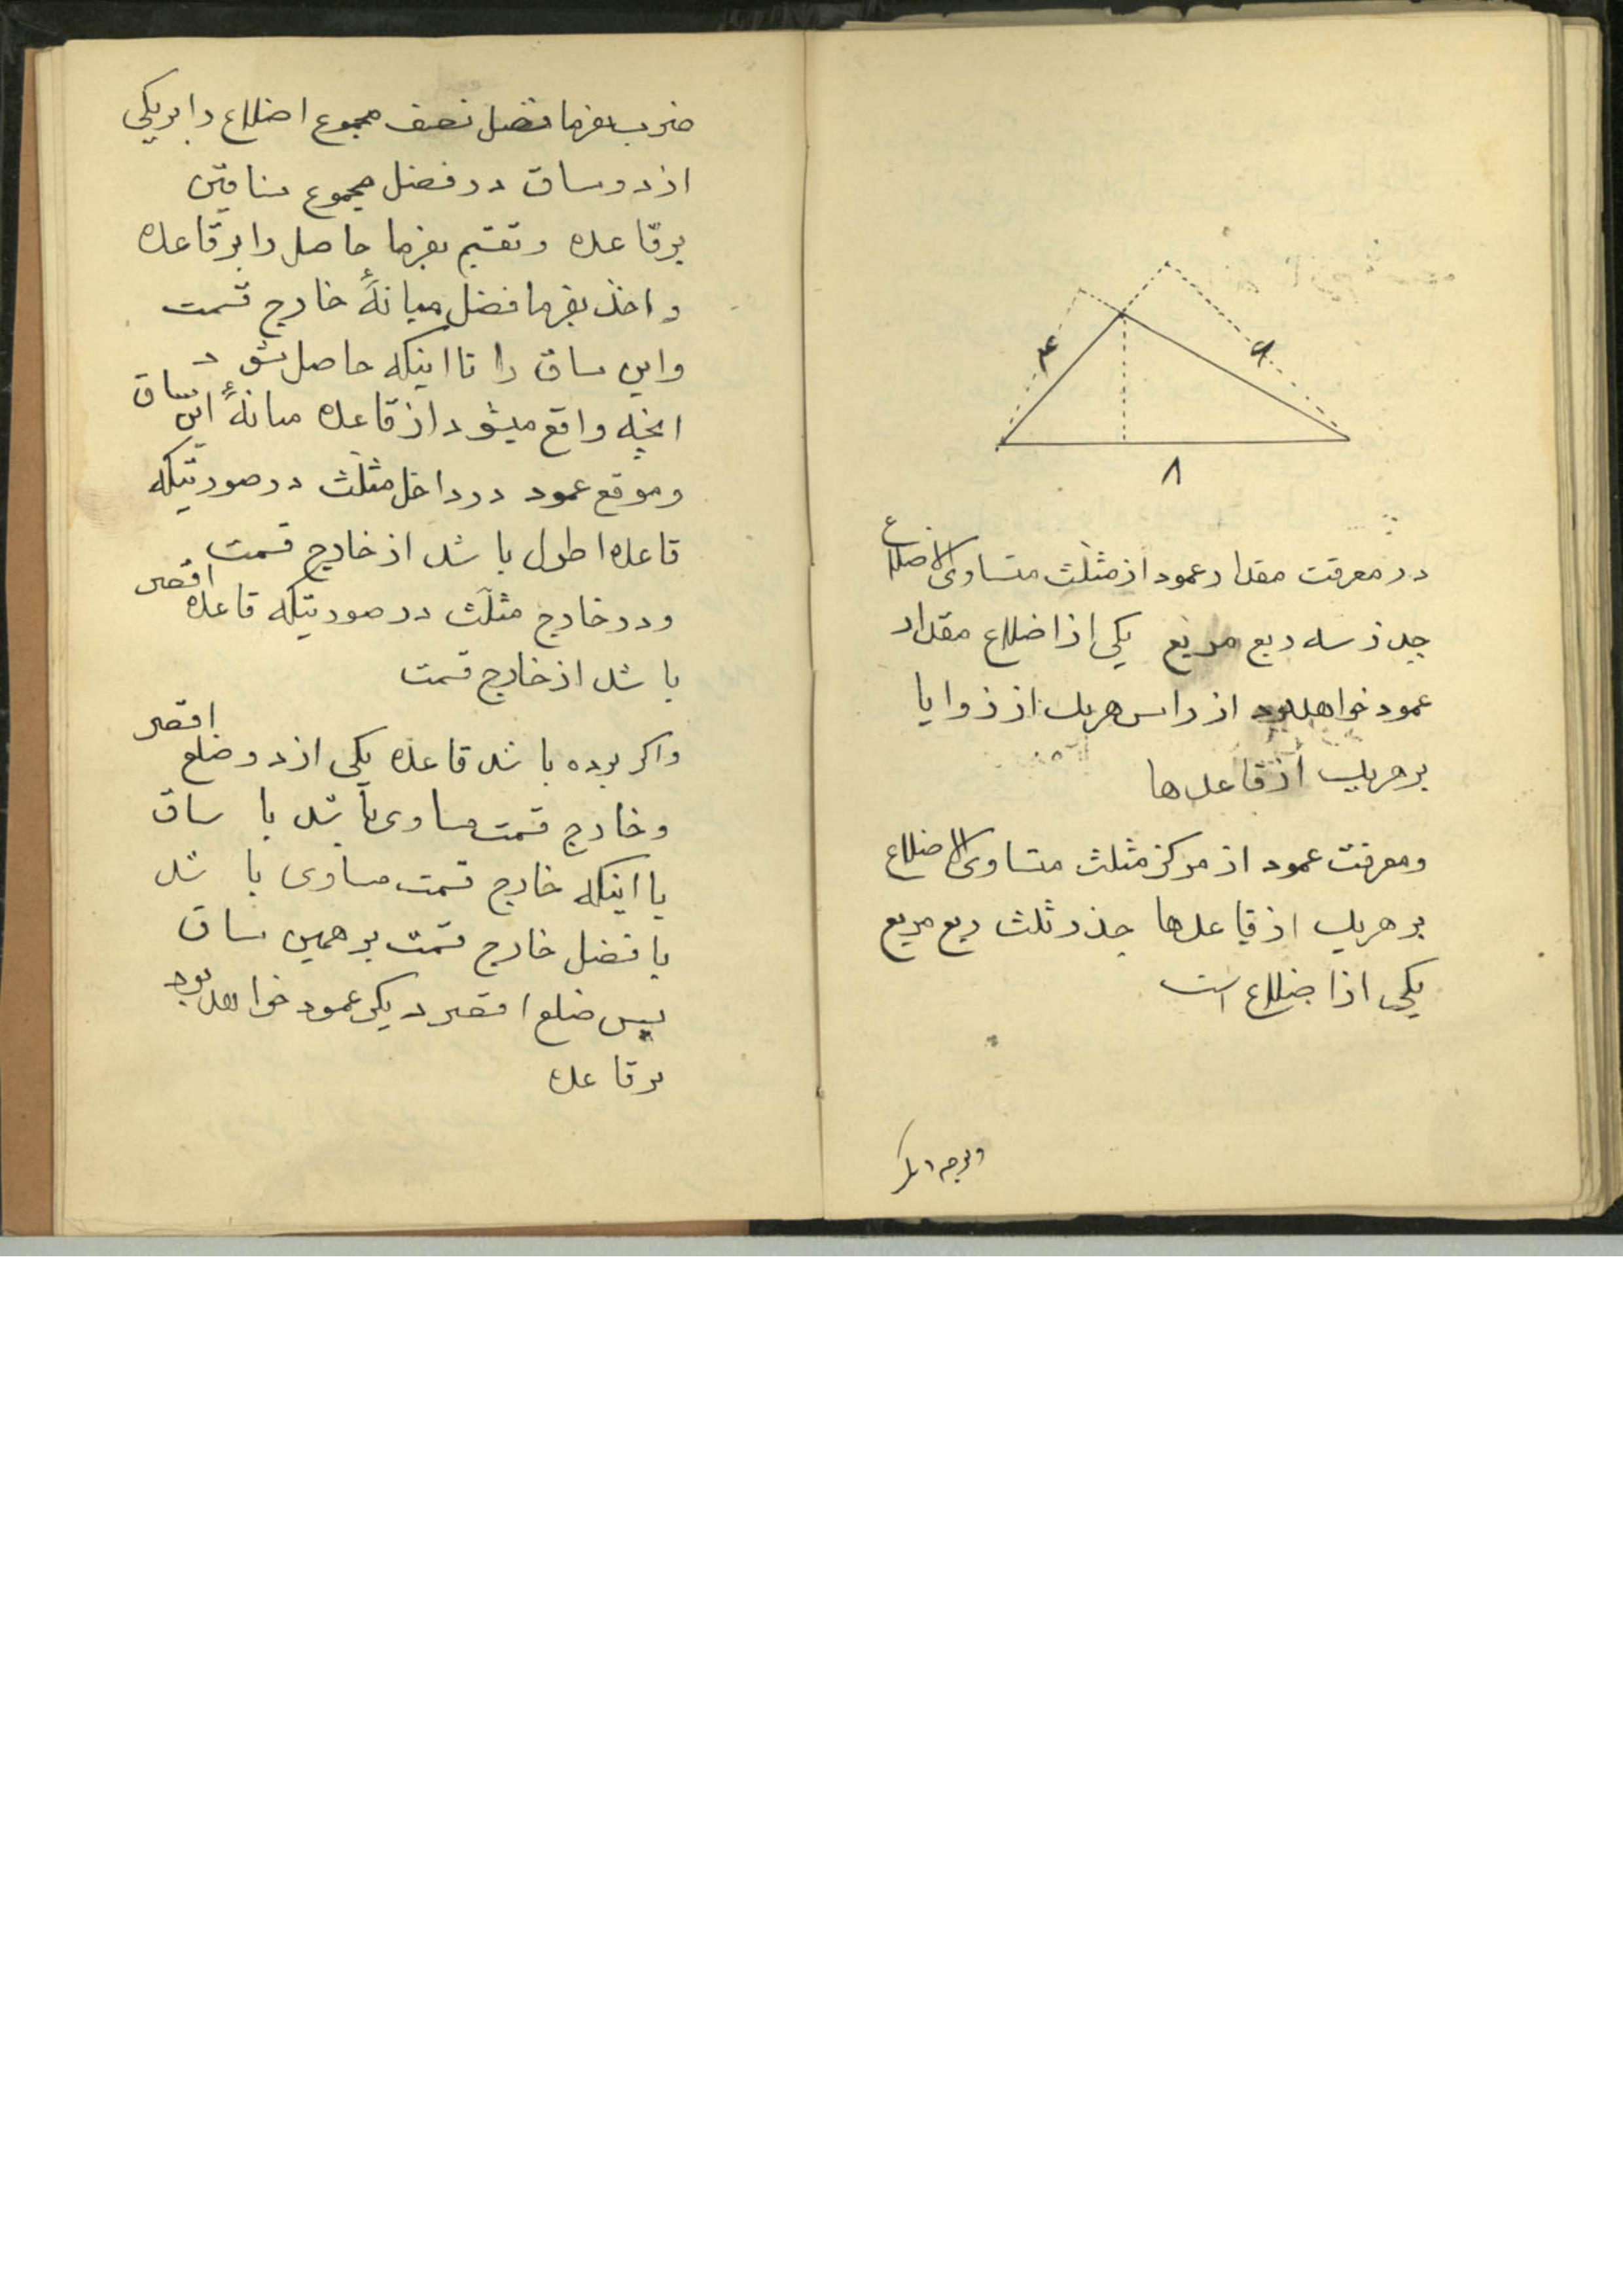 ۴
۶
۸
در معرفت مقدار عمود از مثلّث متساوی الاضلاع
جذر سه ربع مربع یکی از اضلاع مقدار
عمود خواهد بود از راس هریک از زوایا
بر هریک از قاعدها
ومعرفت عمود از مرکز مثلث متساوی الاضلاع
بر هریک از قاعدها جذر ثلث ربع مربع
یکی از اضلاع است
وبوجه دیگر
ضرب بفرما فضل نصف مجموع اضلاع را بریکی
از دو ساق در فضل مجموع ساقین
برقاعده وتقسیم بفرما حاصل را برقاعده
واخذ بفرما فضل میانهٔ خارج قسمت
واین ساق را تا اینکه حاصل شود
انچه واقع میشود از قاعده میانهٔ این ساق
وموقع عمود در داخل مثلّث در صورتیکه
قاعده اطول باشد از خارج قسمت
ودر خارج مثلّث در صورتیکه قاعده اقصر
باشد از خارج قسمت
واکر بوده باشد قاعده یکی از دو ضلع اقصر
وخارج قسمت مساوی باشد با ساق
یا اینکه خارج قسمت مساوی باشد
با فضل خارج قسمت بر همین ساق
پس ضلع اقصر دیکر عمود خواهد بود
برقاعده